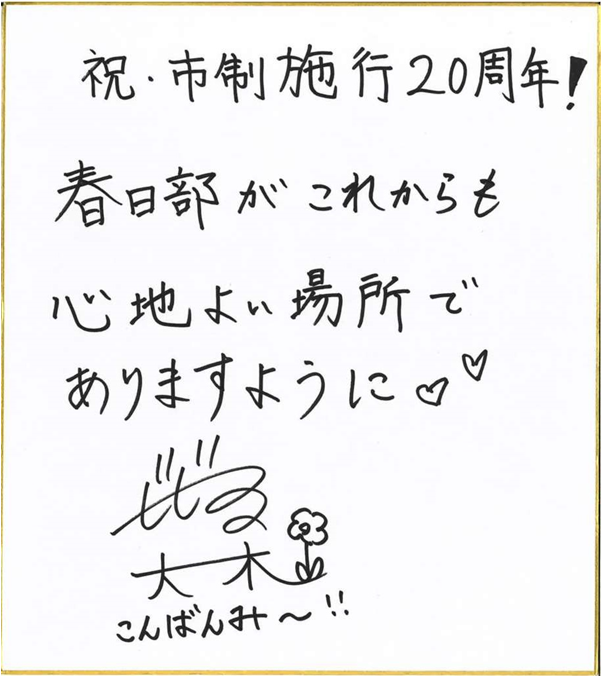 祝・市制施行20周年!
春日部がこれからも
心地よい場所で
ありますように♡♡
ビビる
大木
こんばんみ〜!!